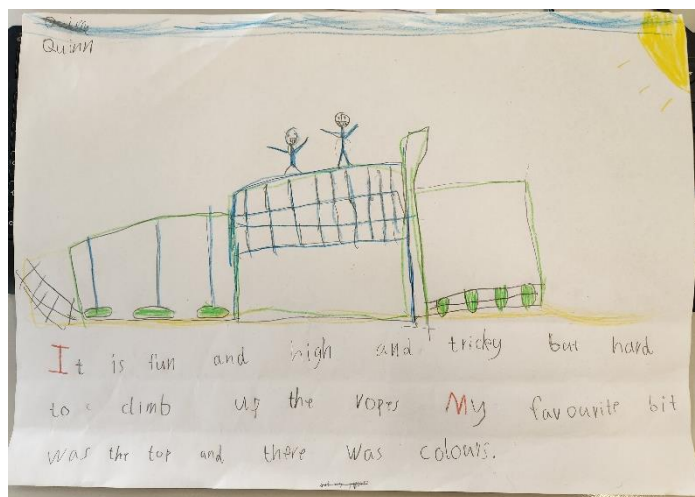 Quinn
It is fun and high and tricky but hard
to climb up the ropes My favourite bit
was the top and there was colours.